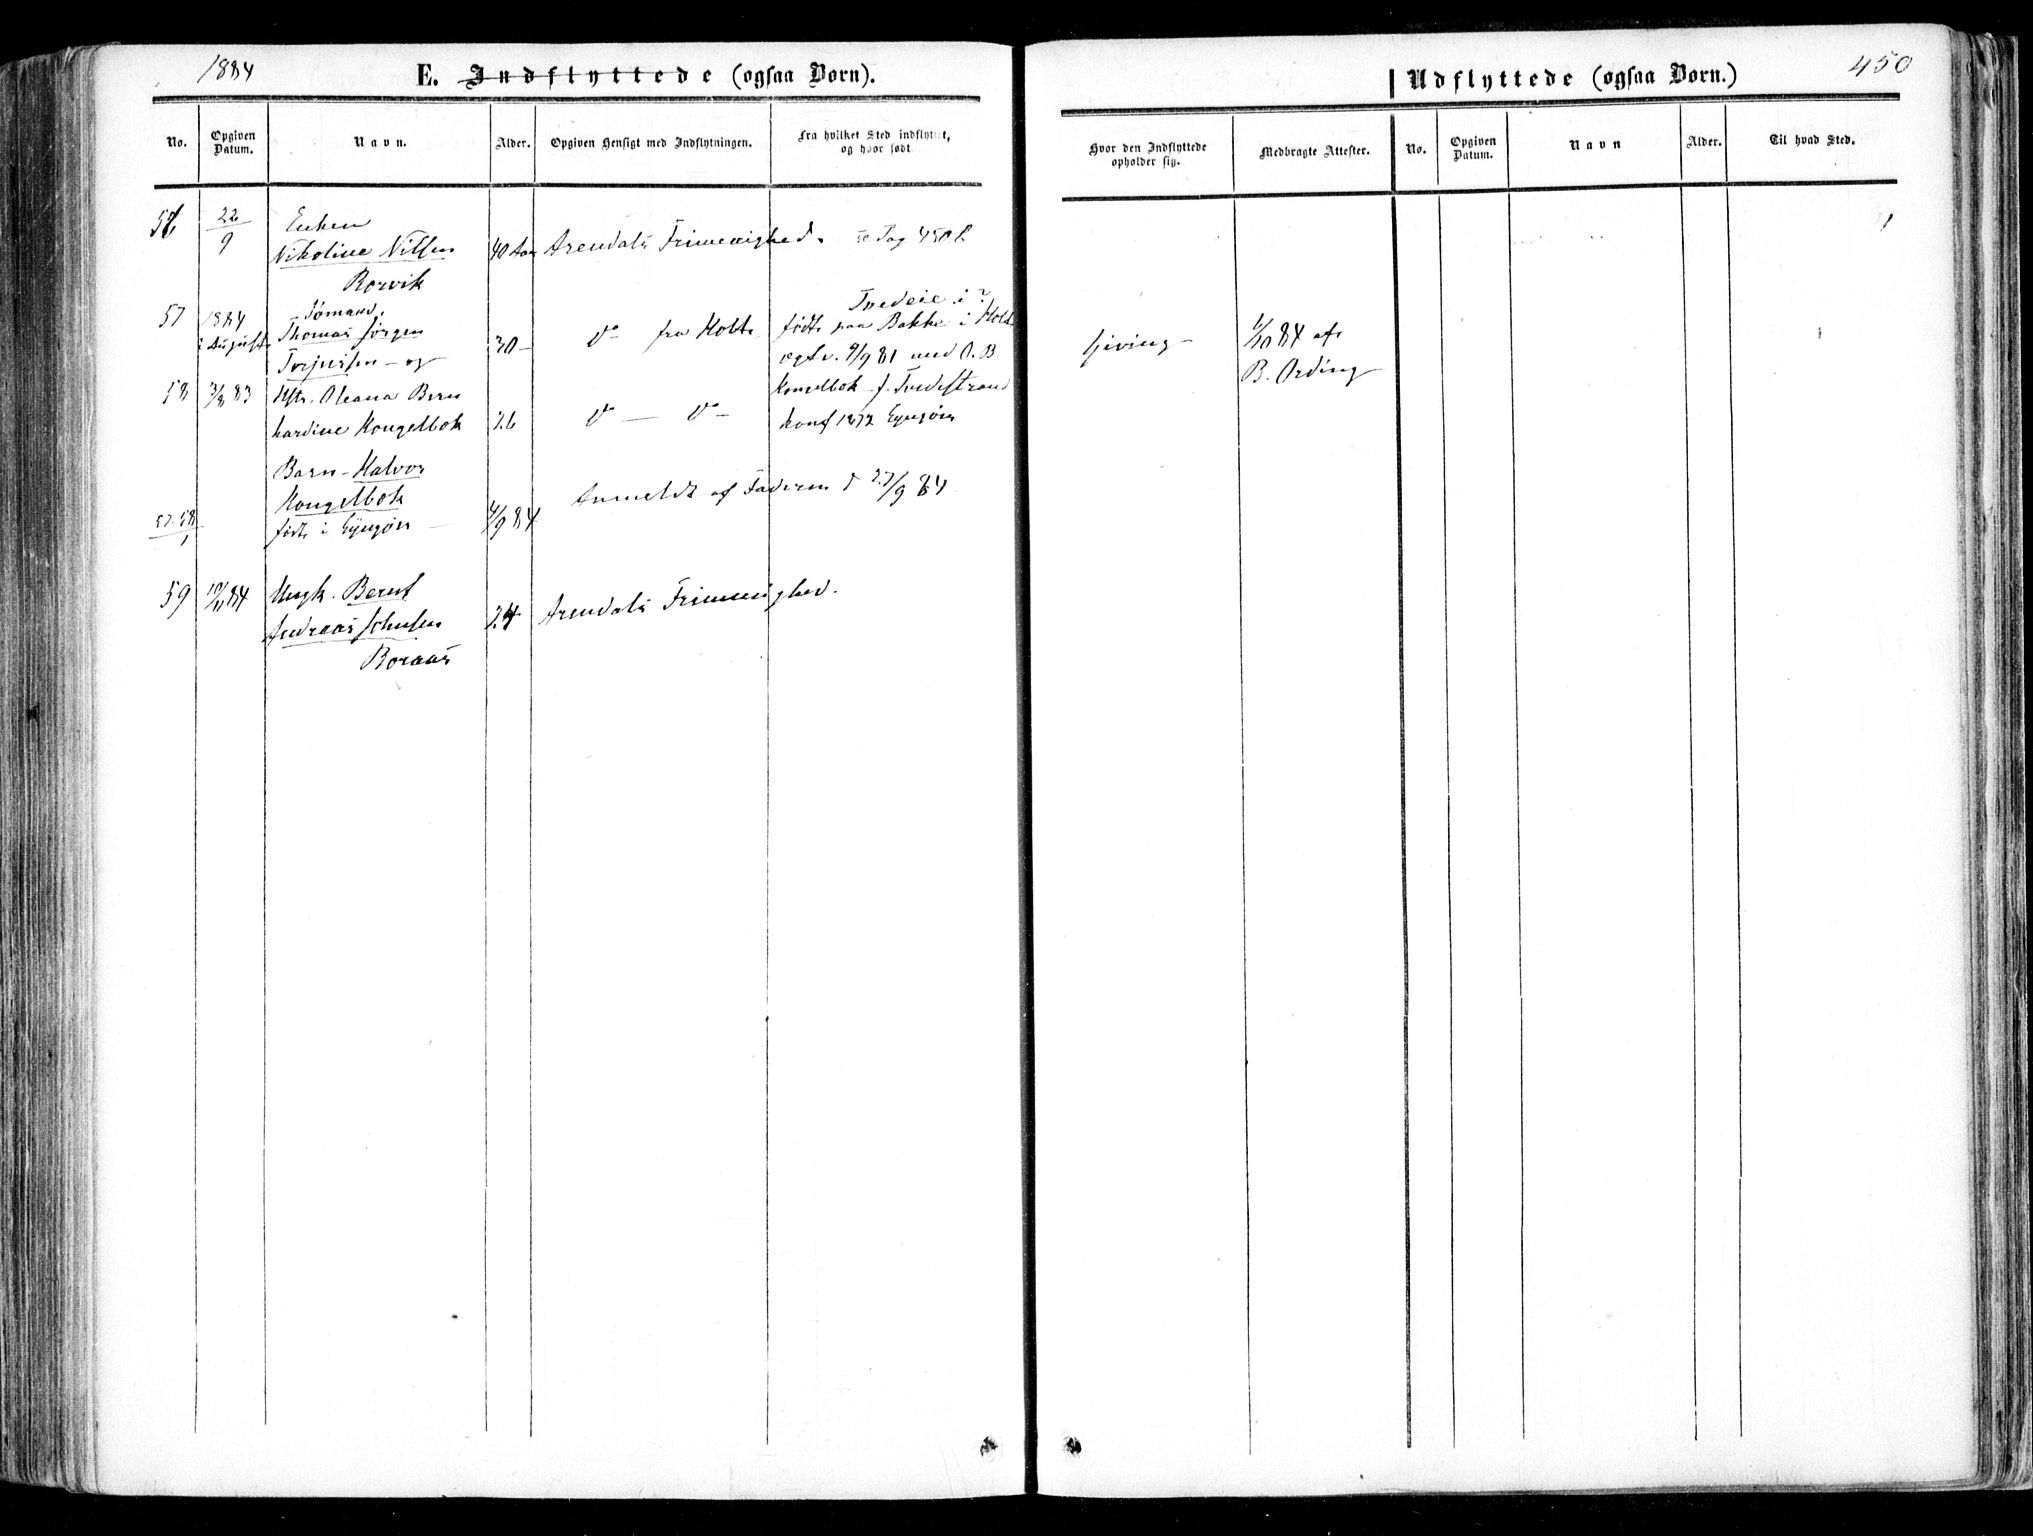 1884
E. Indflyttede (ogsaa Børn).
No.
Opgiven Datum.
Navn.
Alder.
Opgiven Hensigt med Indflytningen.
Fra hvilket Sted indflyttet, og hvor født.
56
22/9
Enken
Nikoline Nilsen
Borvik
40 Aar
Arendals Frimenighed.
se Pag 450 b
57
1884
i August
Sømand.
Thomas Jørgen
Terjussen - og
30 -
do fra Holt
Tvedeie i?
født paa Bakke i Holt
egtv. 9/9 81 med O. B.
Kongelbok f. Tvedestrand
konf 1872 Eynjøm
58
3/8 83
Hstr. Oleana Bern
hardine Kongelbok
26
do — do —
Barn - Halvor
Kongelbok
57-58
1
født i
4/9 84
Anmeldt af Faderen d 27/9 84
59
10/11 84
Ungk. Bernt
Andreas Johnsen
Boraas
24
Arendals Frimenighed.
450
Udflyttede (ogsaa Børn.)
Hvor den Indflyttede opholder sig.
Medbragte Attester.
No.
Opgiven Datum.
Navn
Alder.
Til hvad Sted.
Giving -
6/10 84 af
B. Ording